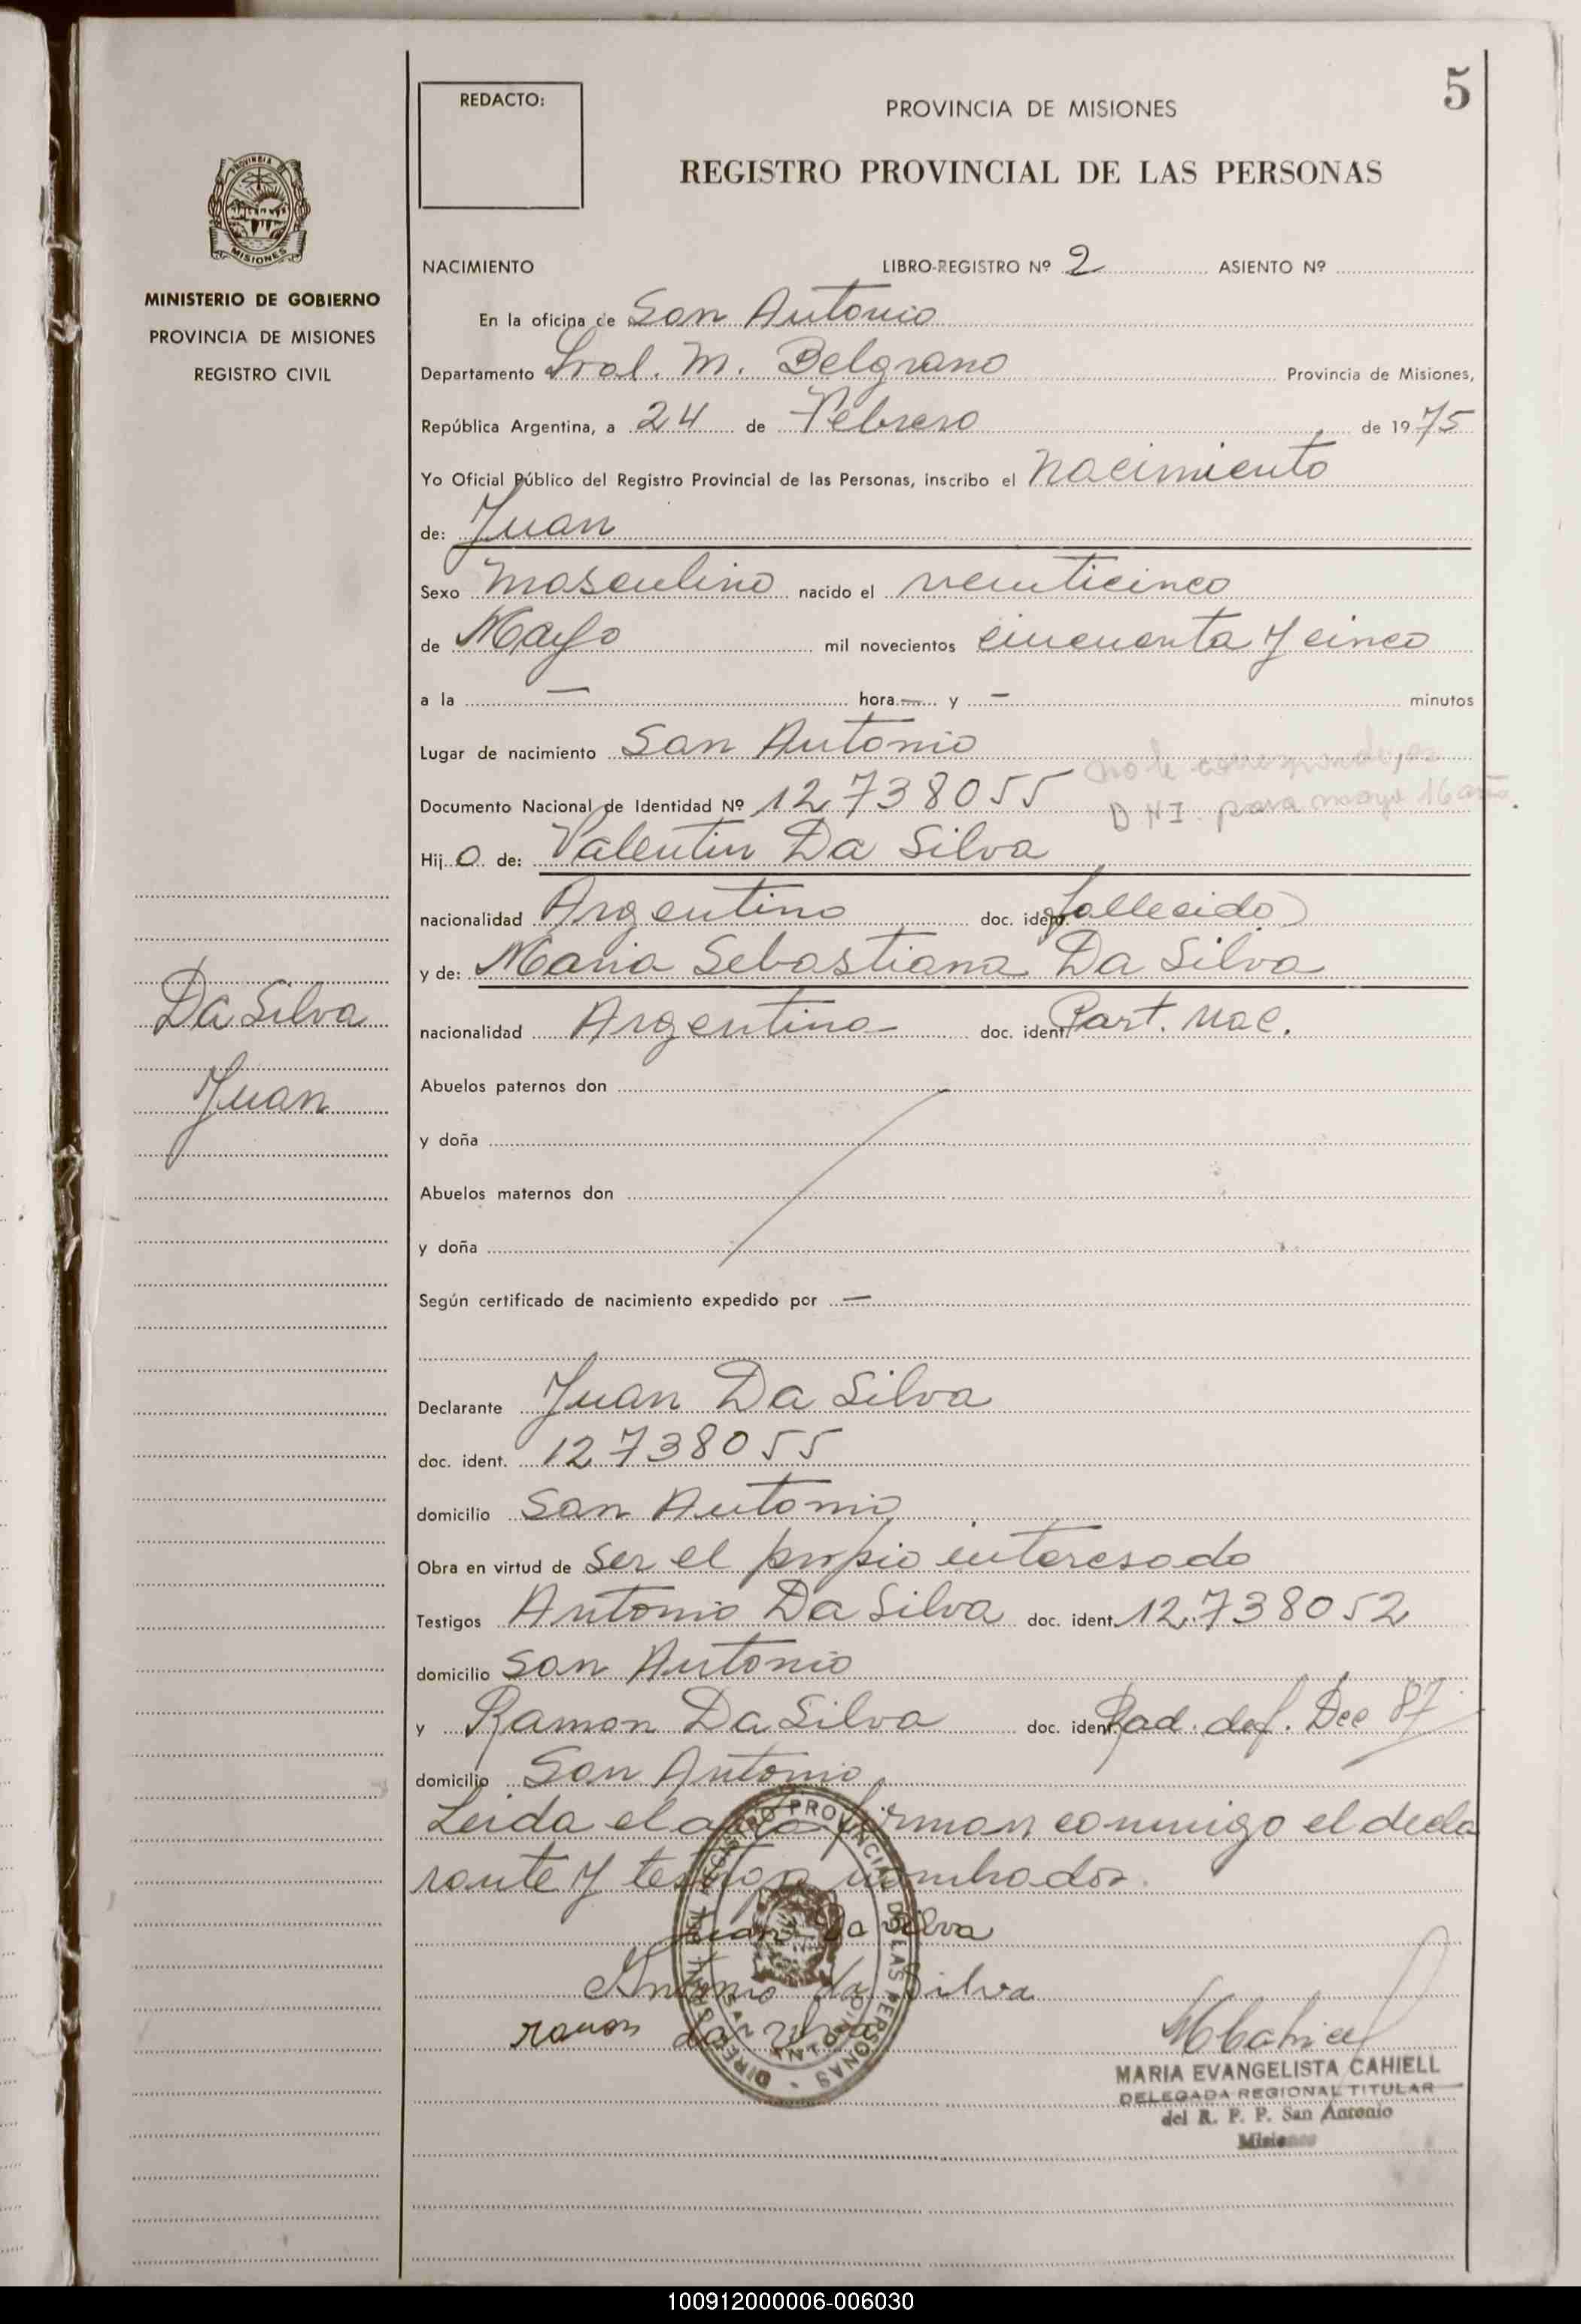 5
REDACTO:
PROVINCIA DE MISIONES
REGISTRO PROVINCIAL DE LAS PERSONAS
PROVINCIA
MISIONES
MINISTERIO DE GOBIERNO
PROVINCIA DE MISIONES
REGISTRO CIVIL
NACIMIENTO LIBRO-REGISTRO Nº 2 ASIENTO Nº
En la oficina de San Antonio
Departamento Gral. M. Belgrano Provincia de Misiones,
República Argentina, a 24 de Febrero de 1975
Yo Oficial Público del Registro Provincial de las Personas, inscribo el nacimiento
de: Juan
Sexo masculino nacido el veinticinco
de Mayo mil novecientos cincuenta y cinco
a la — hora — y — minutos
Lugar de nacimiento San Antonio
no le corresponde
Documento Nacional de Identidad Nº 12.738055 DNI. para mayo 16
Hijo de: Valentin Da Silva
nacionalidad Argentino doc. ident. fallecido
y de: Maria Sebastiana Da Silva
nacionalidad Argentina doc. ident. Part. Nac.
Da Silva
Juan
Abuelos paternos don
y doña
Abuelos maternos don
y doña
Según certificado de nacimiento expedido por —
Declarante Juan Da Silva
doc. ident. 12.738055
domicilio San Antonio
Obra en virtud de ser el propio interesado
Testigos Antonio Da Silva doc. ident. 12.738052
domicilio San Antonio
y Ramon Da Silva doc. ident. Rad. def. Dec 87
domicilio San Antonio
Leida el acta firman conmigo el decla
rante y testigos nombrados.
Juan Da Silva
Antonio da Silva
ramon da silva
DIRECCION DEL REGISTRO PROVINCIAL DE LAS PERSONAS
SAN ANTONIO
MARIA EVANGELISTA CAHIELL
DELEGADA REGIONAL TITULAR
del R. P. P. San Antonio
Misiones
100912000006-006030